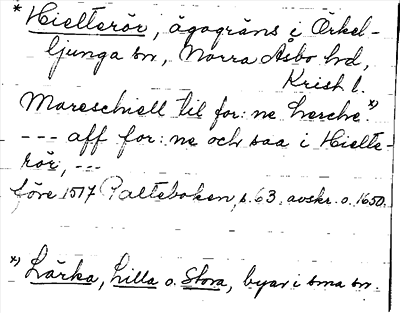 * Hielterör, ägogräns i Örkel-
ljunga sn, Norra Åsbo hd,
Krist l.
Mareschiell til for: ne Lerche *)
--- aff for: ne och saa i Hielte-
rör, ---
före 1517 Palteboken, s. 63, avskr. o. 1650.
*) Lärka, Lilla o. Stora, byar i sma sn.